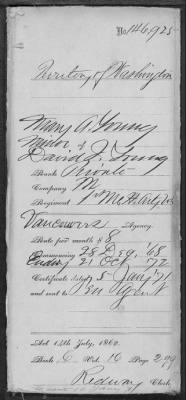 No. 146,925
Territory of Washington
Mary A. Young
Widow of
David J. Young
Rank Private
Company M
Regiment 1st Me H. Arty Vols
Vancouver Agency.
Rate per month $8
Commencing 28 Dec, '68
Ending 21 Oct '72
Certificate dated 5 Jany '71
and sent to
Act 14th July, 1862.
Book C Vol. 16 Page 299
Clerk.